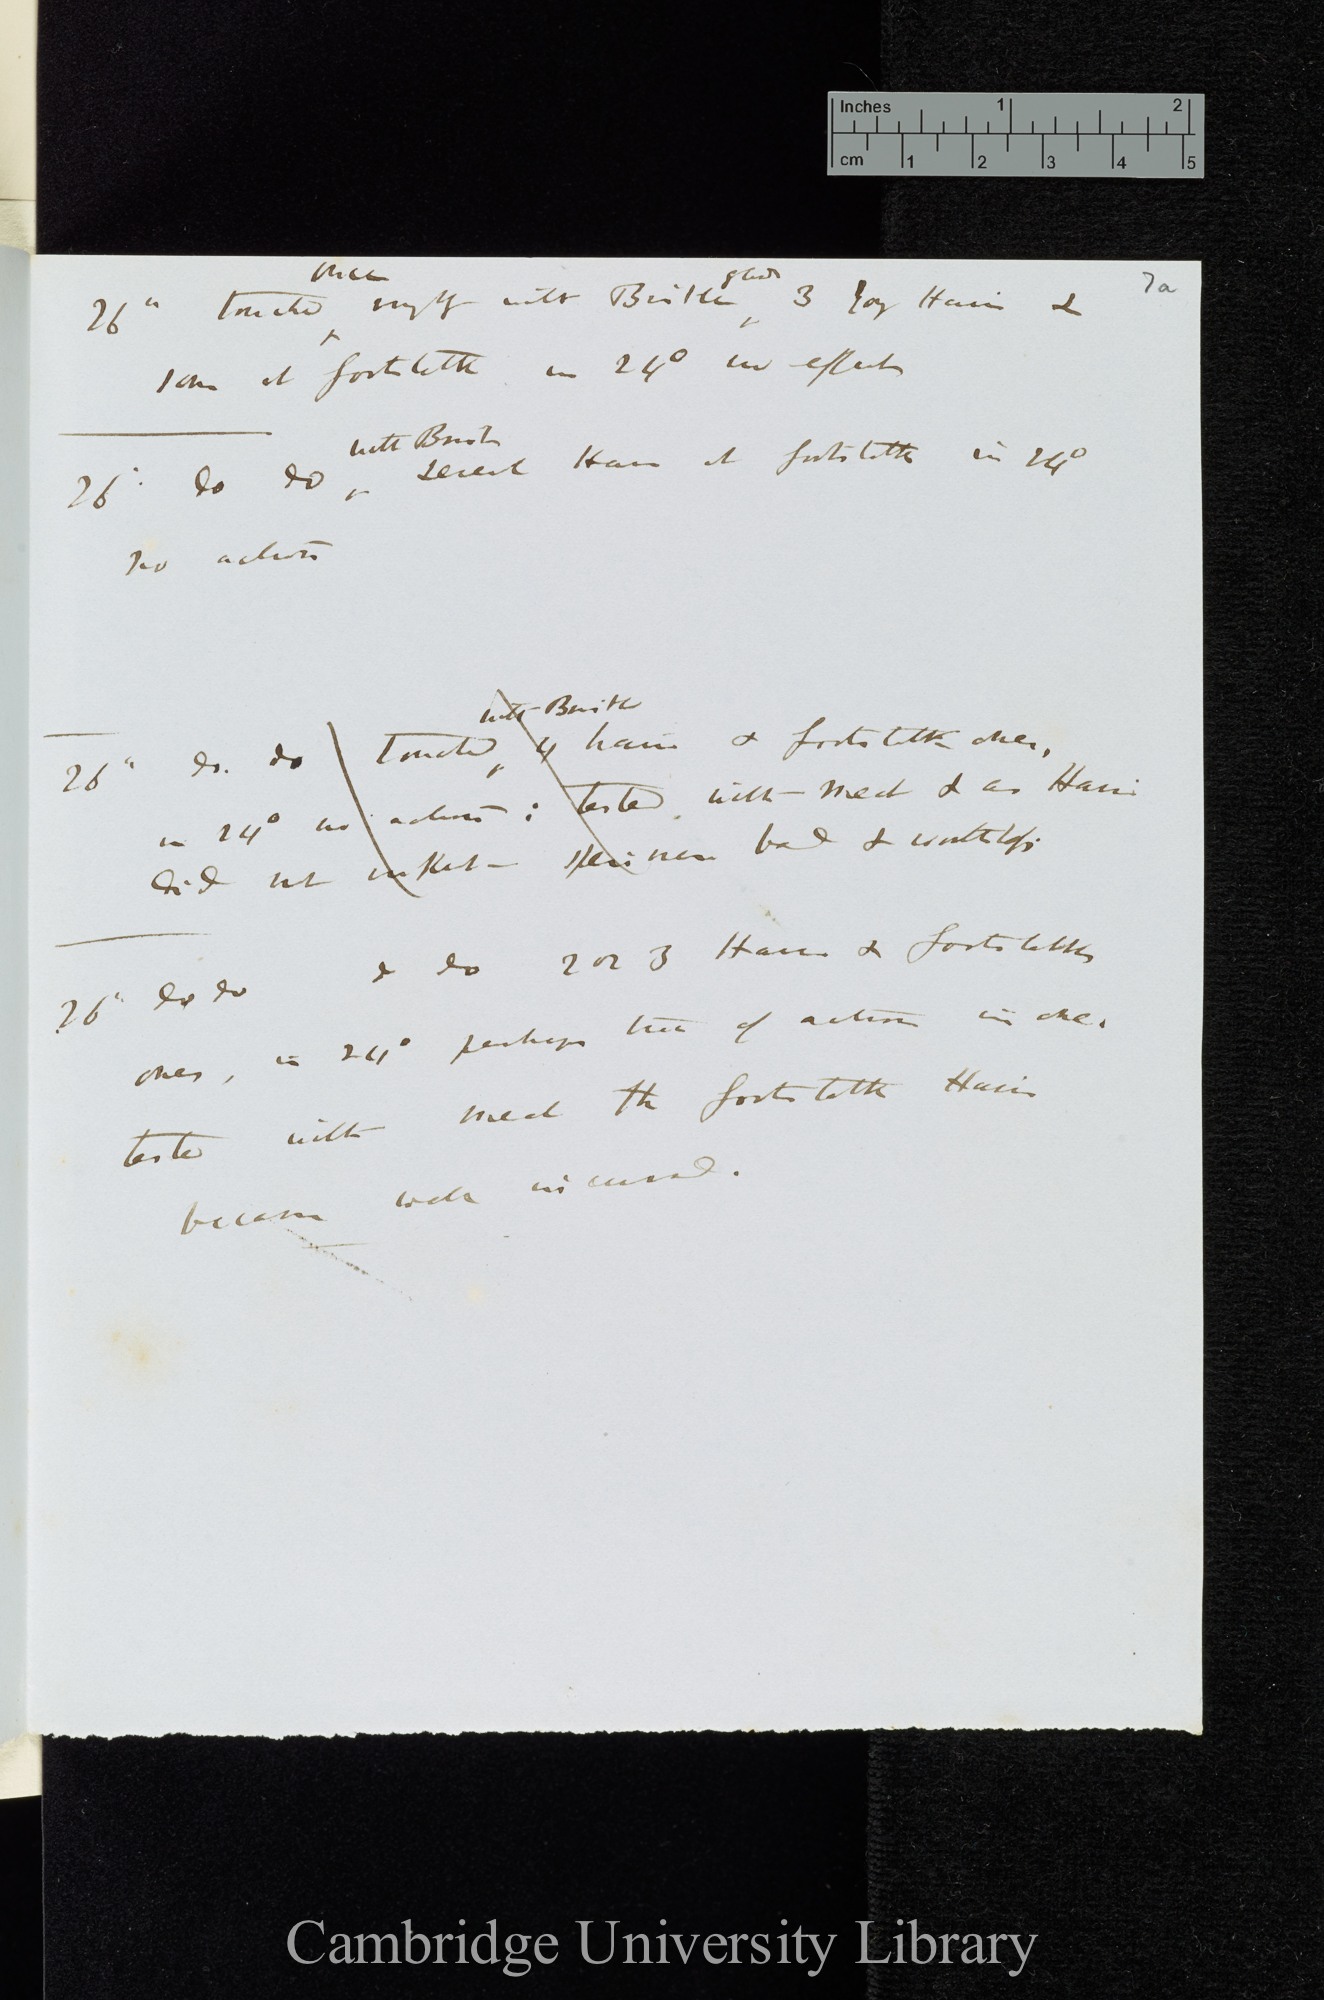 Inches 1 2
cm 1 2 3 4 5
7a
once
26" touched roughly with Bristle gland 3 long Hairs &
some at footstalk in 24° no effect
with Bristle
26" do do several Hairs at footstalk in 24°
no action
with Bristle
26" do. do touched 4 hairs & footstalk ones,
in 24° no action; tested with meat & as Hairs
did not inflect specimen bad & worthless
26" do do & do 2 or 3 Hairs & footstalks
ones, in 24° perhaps trace of action in one.
tested with meat the footstalk Hairs
became well incurved.
Cambridge University Library